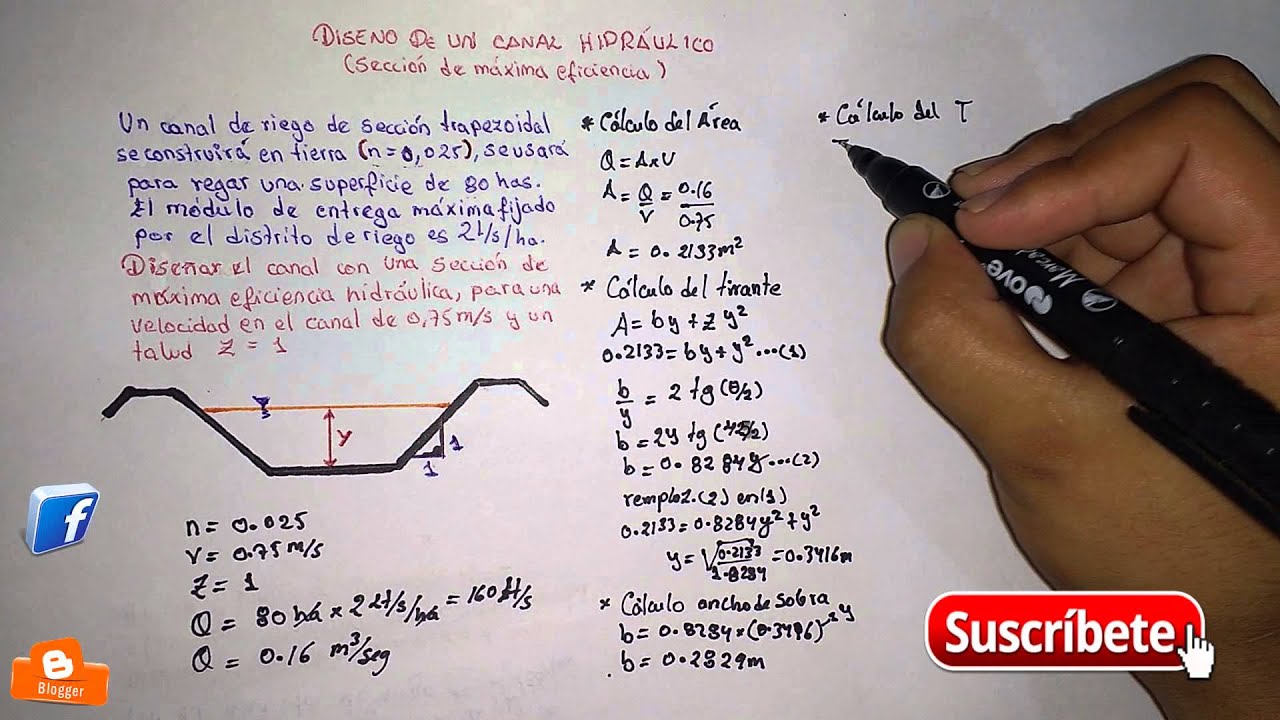 DISEÑO DE UN CANAL HIDRÁULICO
(Sección de máxima eficiencia)
Un canal de riego de sección trapezoidal
se construirá en tierra (n=0,025), se usará
para regar una superficie de 80 has.
El módulo de entrega máxima fijado
por el distrito de riego es 2lt/s/ha.
Diseñar el canal con una sección de
máxima eficiencia hidráulica, para una
velocidad en el canal de 0,75m/s y un
talud Z = 1
y
1
1
n = 0.025
v = 0.75 m/s
Z = 1
Q = 80 há x 2 lt/s/há = 160 lt/s
Q = 0.16 m³/seg
* Cálculo del Área
Q = AxV
A = Q/V = 0.16/0.75
A = 0.2133m²
* Cálculo del tirante
A = by + z y²
0.2133 = by + y² ...(1)
b/y = 2 tg(θ/2)
b = 2y tg(45/2)
b = 0.8284y...(2)
remplaz.(2) en(1)
0.2133 = 0.8284y² + y²
y = √0.2133/1.8284 = 0.3416m
* Cálculo ancho de sobra
b = 0.8284*(0.3416) y
b = 0.2829m
* Cálculo del T
Nove
f
B
Blogger
Suscríbete